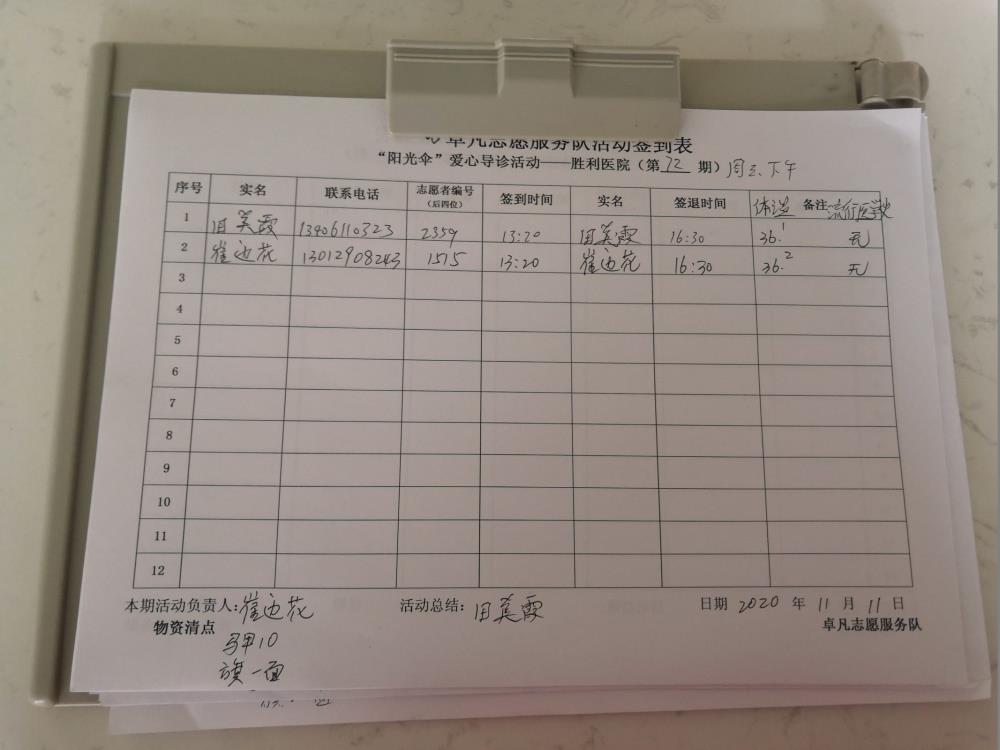 卓凡志愿服务队活动签到表
“阳光伞”爱心导诊活动——胜利医院（第72期）周三下午
序号 实名 联系电话 志愿者编号（后四位） 签到时间 实名 签退时间 体温 备注 流行医学史
1 田美霞 13406110323 2359 13:20 田美霞 16:30 36.1 无
2 崔边花 13012908243 1515 13:20 崔边花 16:30 36.2 无
3
4
5
6
7
8
9
10
11
12
本期活动负责人:崔边花 活动总结: 田美霞 日期 2020 年 11 月 11 日
物资清点 卓凡志愿服务队
马甲10
旗一面